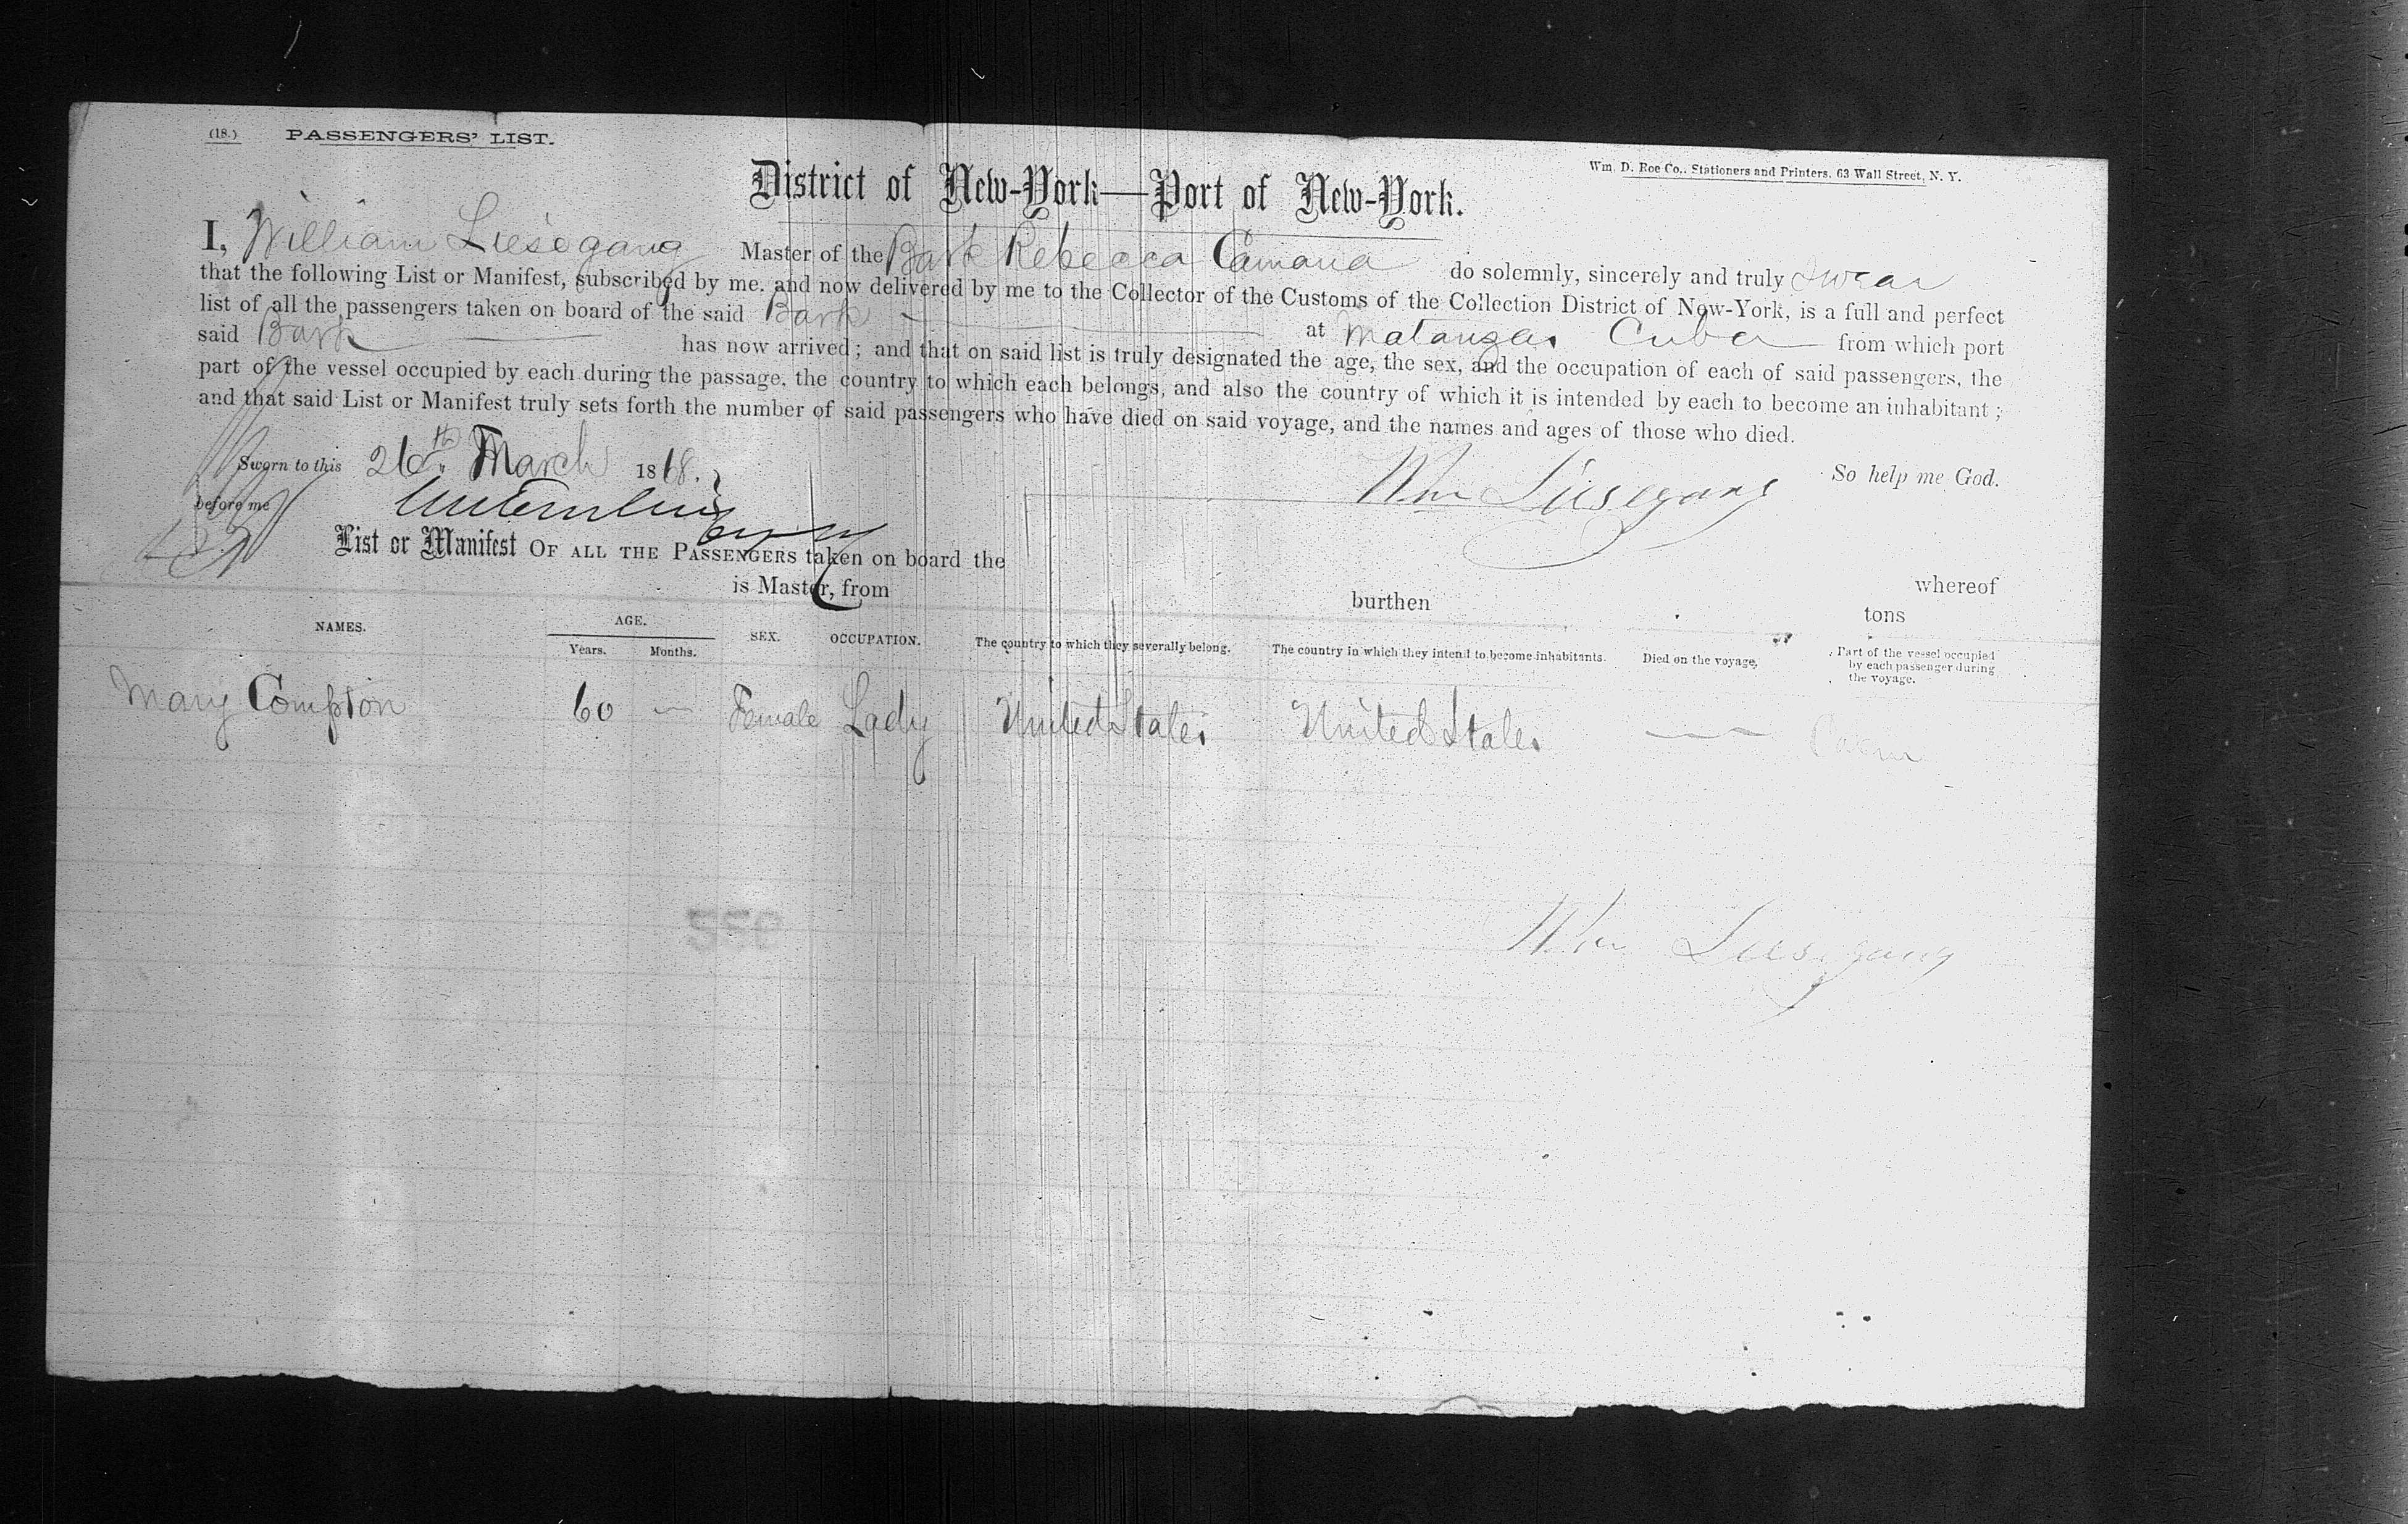 (18.) PASSENGERS' LIST.
Wm. D. Roe Co., Stationers and Printers, 63 Wall Street, N. Y.
District of New-York—Port of New-York.
I, William Liesegang Master of the Bark Rebecca Camana do solemnly, sincerely and truly swear
that the following List or Manifest, subscribed by me, and now delivered by me to the Collector of the Customs of the Collection District of New-York, is a full and perfect
list of all the passengers taken on board of the said Bark at Matanzas Cuba from which port
said Bark has now arrived; and that on said list is truly designated the age, the sex, and the occupation of each of said passengers, the
part of the vessel occupied by each during the passage, the country to which each belongs, and also the country of which it is intended by each to become an inhabitant;
and that said List or Manifest truly sets forth the number of said passengers who have died on said voyage, and the names and ages of those who died.
So help me God.
Sworn to this 26th March 1868.
Wm Liesegang
before me
List or Manifest OF ALL THE PASSENGERS taken on board the whereof
is Master, from burthen tons
NAMES. AGE. Years. Months. SEX. OCCUPATION. The country to which they severally belong. The country in which they intend to become inhabitants. Died on the voyage. Part of the vessel occupied by each passenger during the voyage.
Mary Compton 60 — Female Lady United States United States —
550
Wm Liesegang